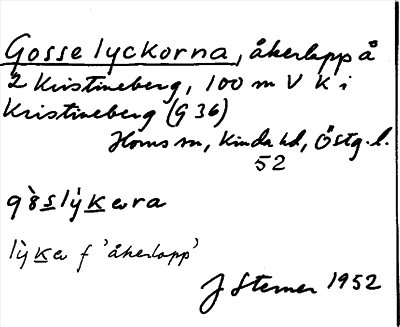 Gosse lyckorna, åkerlapp å
2 Kristineberg, 100 m V K i
Kristineberg (G 36)
Horns sn, Kinda hd, Östg. l.
52
gòs̲lỳk̲ɐra
lỳk̲ɐ f 'åkerlapp'
J Sterner 1952